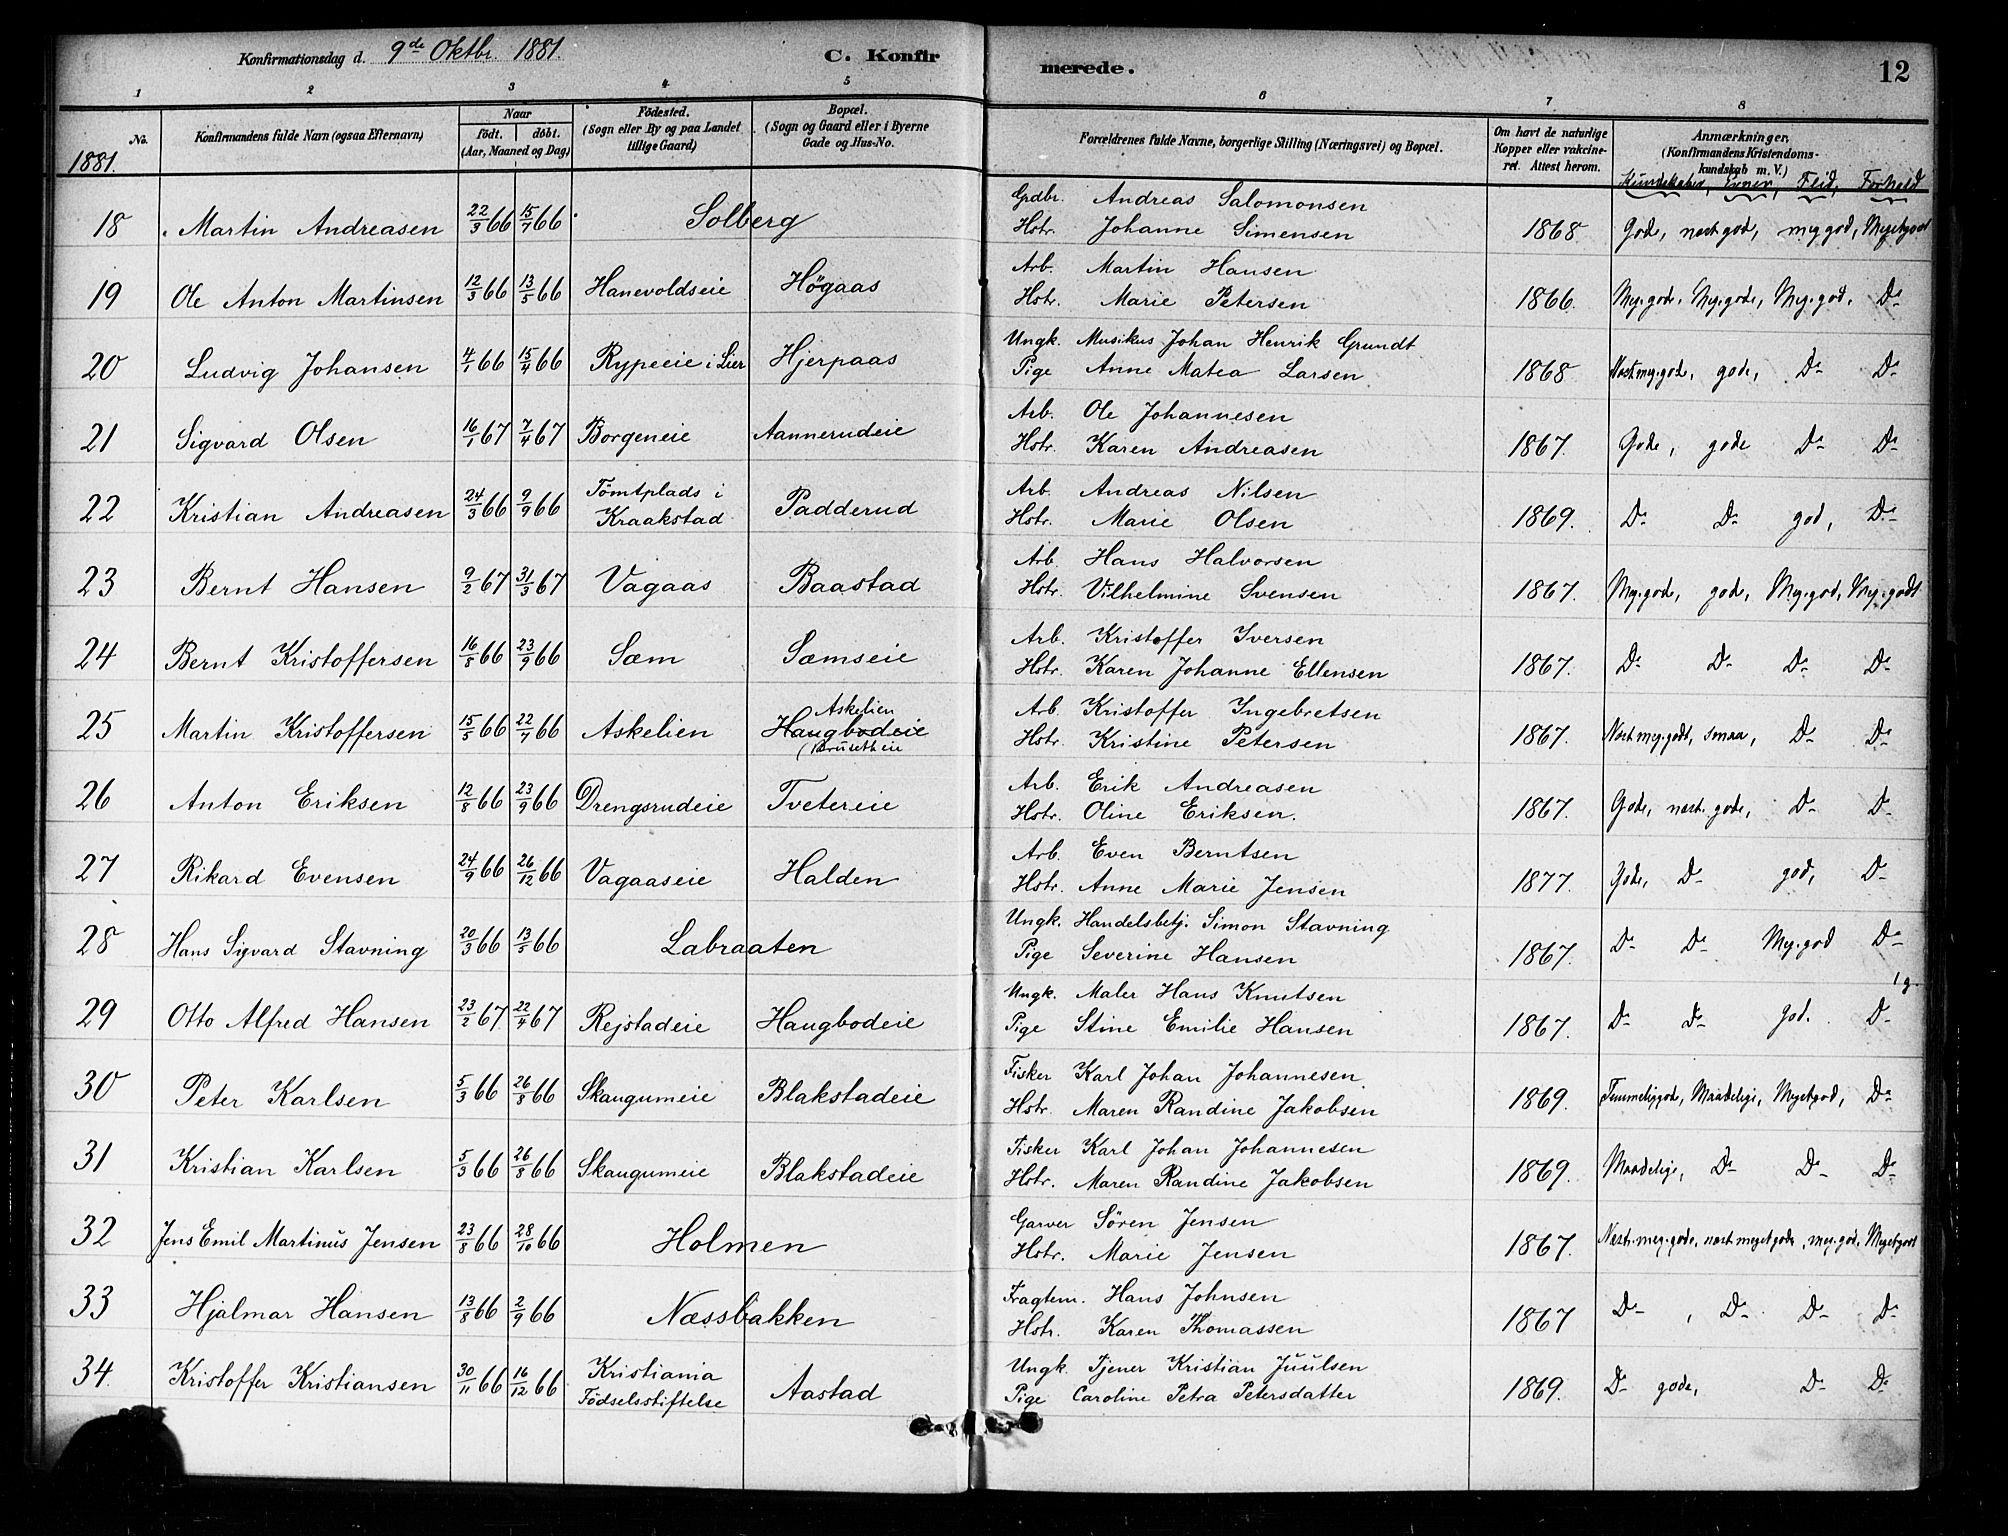 Konfirmationsdag d. 9de Oktbr. 1881.
C. Konfirmerede.
12
1 2 3 4 5 6 7 8
No.
1881.
Konfirmandens fulde Navn (ogsaa Efternavn)
Naar
født. døbt.
(Aar, Maaned og Dag)
Fødested.
(Sogn eller By og paa Landet
tillige Gaard)
Bopæl.
(Sogn og Gaard eller i Byerne
Gade og Hus-No.
Forældrenes fulde Navne, borgerlige Stilling (Næringsvei) og Bopæl.
Om havt de naturlige
Kopper eller vakcine-
ret. Attest herom.
Anmærkninger,
(Konfirmandens Kristendoms-
kundskab m. V.)
Kundskaber, Evner, Flid, Forhold
Grdbr. Andreas Salomonsen
18 Martin Andreasen 22/3 66 15/7 66 Solberg Hstr. Johanne Simensen 1868 Gode, næst god, myg god, Megetgodt
Arb. Martin Hansen
19 Ole Anton Martinsen 12/3 66 13/5 66 Hanevoldseie Høgaas Hstr. Marie Petersen 1866. My.gode, My.gode, My.god, Do
Ungk. Musikus Johan Henrik Grundt
20 Ludvig Johansen 4/1 66 15/4 66 Rypeeie i Lier Hjerpaas Pige Anne Matea Larsen 1868 Næst my.gode, gode, Do Do
Arb. Ole Johannesen
21 Sigvard Olsen 16/1 67 7/4 67 Borgeneie Aannerudeie Hstr. Karen Andreasen 1867. Gode, gode Do Do
Arb. Andreas Nilsen
22 Kristian Andreasen 24/3 66 9/9 66 Tømtplads i Kraakstad Padderud Hstr. Marie Olsen 1869. Do Do god, Do
Arb. Hans Halvorsen
23 Bernt Hansen 9/2 67 31/3 67 Vagaas Baastad Hstr. Vilhelmine Svensen 1867. My.gode, gode, My.god, My.godt
Arb. Kristoffer Iversen
24 Bernt Kristoffersen 16/8 66 23/9 66 Sæm Sæmseie Hstr. Karen Johanne Ellensen 1867. Do Do Do Do
Askelien
Arb. Kristoffer Ingebretsen
25 Martin Kristoffersen 15/5 66 22/7 66 Askelien Haugbodeie Hstr. Kristine Petersen 1867. Næst my.godt, smaa, Do Do
(Brusetheie
Arb. Erik Andreasen
26 Anton Eriksen 12/8 66 23/9 66 Drengsrudeie Tvetereie Hstr. Oline Eriksen. 1867. Gode, næst gode, Do Do
Arb. Even Berntsen
27 Rikard Evensen 24/9 66 26/12 66 Vagaaseie Halden Hstr. Anne Marie Jensen 1877. Gode, Do god, Do
Ungk. Handelsbetj. Simon Stavning
28 Hans Sigvard Stavning 20/3 66 13/5 66 Labraaten Pige Severine Hansen 1867. Do Do My.god Do
Ungk. Maler Hans Knutsen
29 Otto Alfred Hansen 23/2 67 22/4 67 Rejstadeie Haugbodeie Pige Stine Emilie Hansen 1867. Do Do god. Do
Fisker Karl Johan Johannesen
30 Peter Karlsen 5/3 66 26/8 66 Skaugumeie Blakstadeie Hstr. Maren Randine Jakobsen 1869. Temmeliggode, Maadelige, Megetgod, Do
Fisker Karl Johan Johannesen
31 Kristian Karlsen 5/3 66 26/8 66 Skaugumeie Blakstadeie Hstr. Maren Randine Jakobsen 1869. Maadelige, Do Do Do
Garver Søren Jensen
32 Jens Emil Martinus Jensen 23/8 66 28/10 66 Holmen Hstr. Marie Jensen 1867. Næst meg.gode, næst megetgode, meg.god, Megetgodt
Fragtem. Hans Johnsen
33 Hjalmar Hansen 13/8 66 2/9 66 Næssbakken Hstr. Karen Thomassen 1867 Do, Do Do Do
Ungk. Tjener Kristian Juulsen
34. Kristoffer Kristiansen 30/11 66 16/12 66 Kristiania Fødselsstiftelse Aastad Pige Caroline Petra Petersdatter 1869. Do gode, Do Do